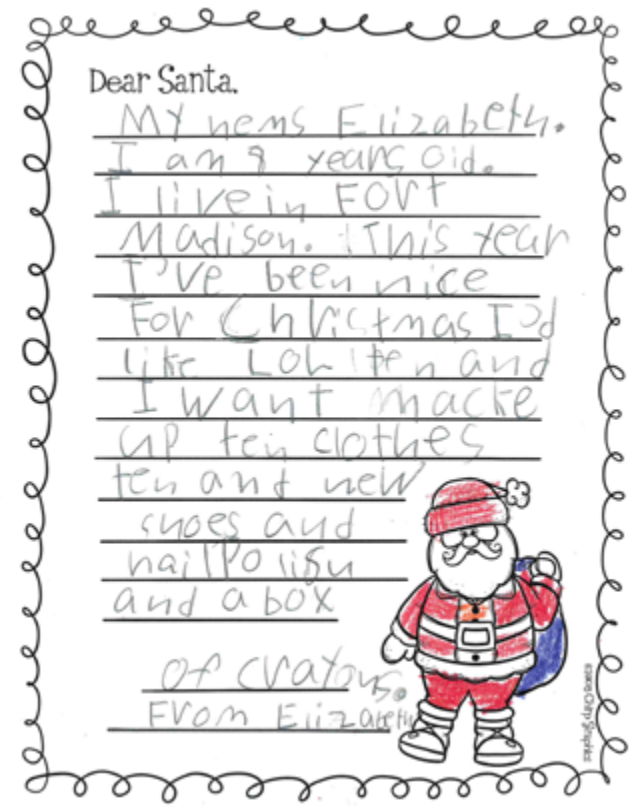 Dear Santa,
My nems Elizabeth.
I am 8 years old.
I live in Fort
Madison. This year
I've been nice
For Christmas I'd
like LOL ten and
I want macke
up ten clothes
ten and new
shoes and
nailPolish
and a box
of crayons.
From Elizabeth